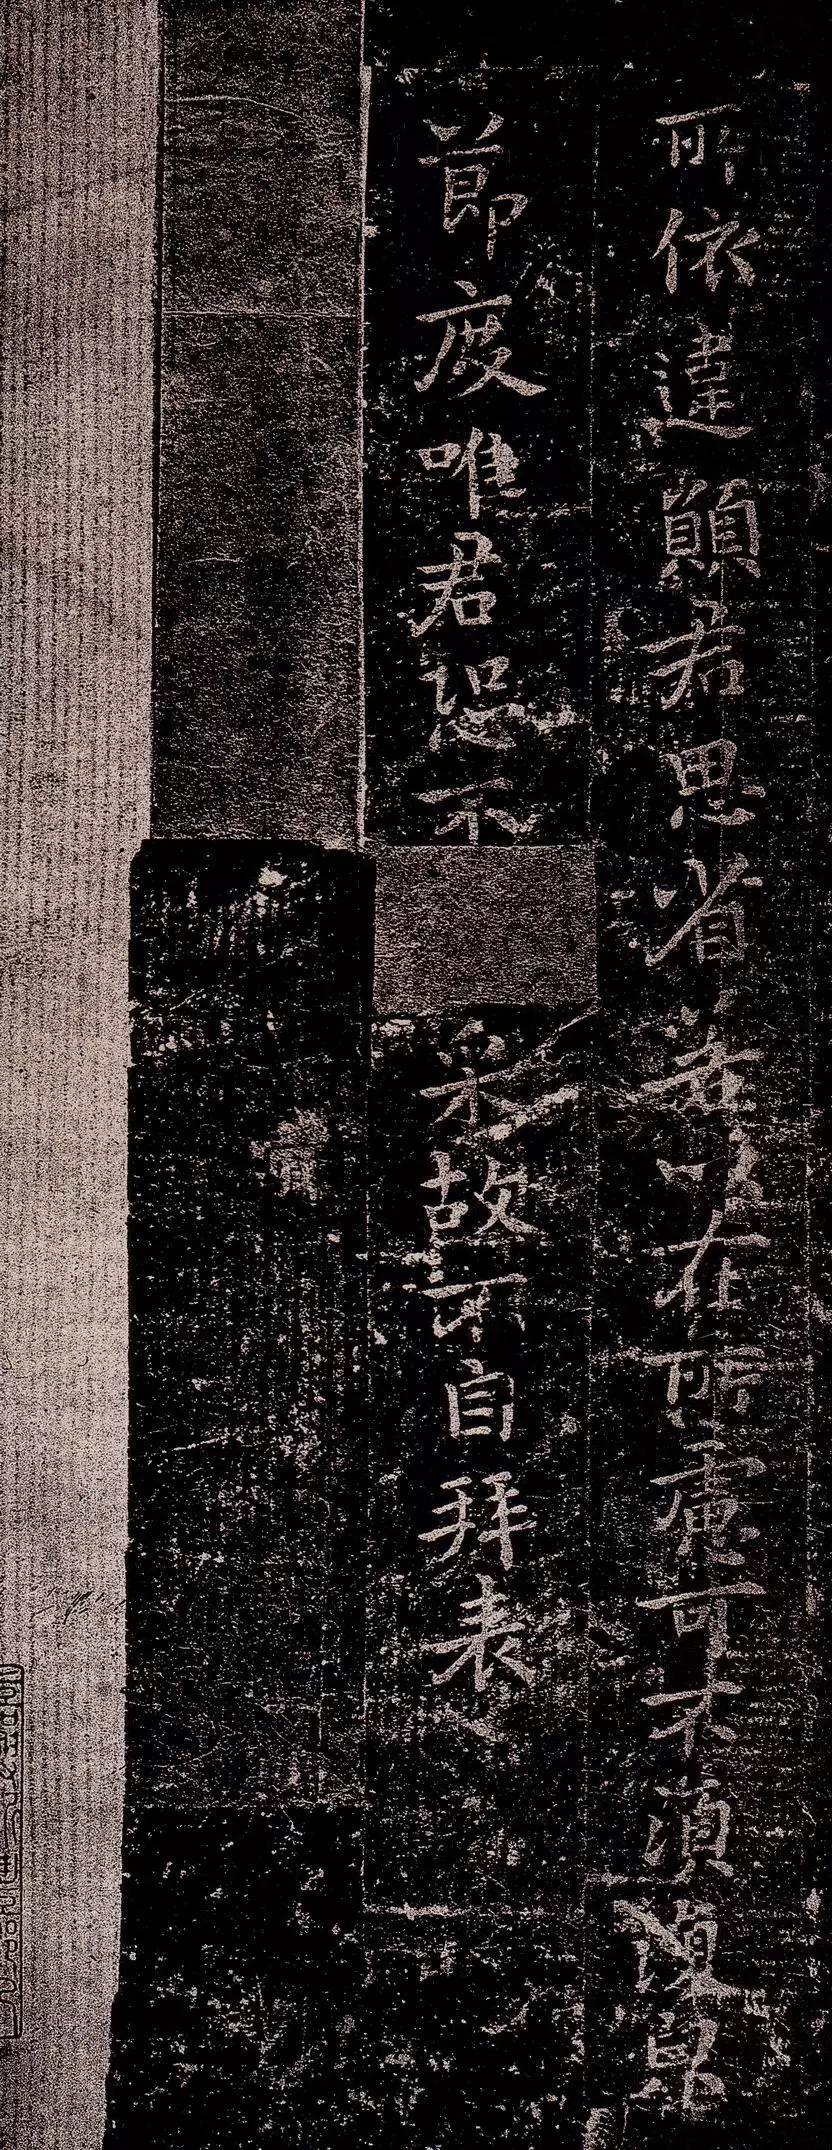 所依違願君思省若以在所慮可不須復皃
節度唯君恐不
示故不自拜表